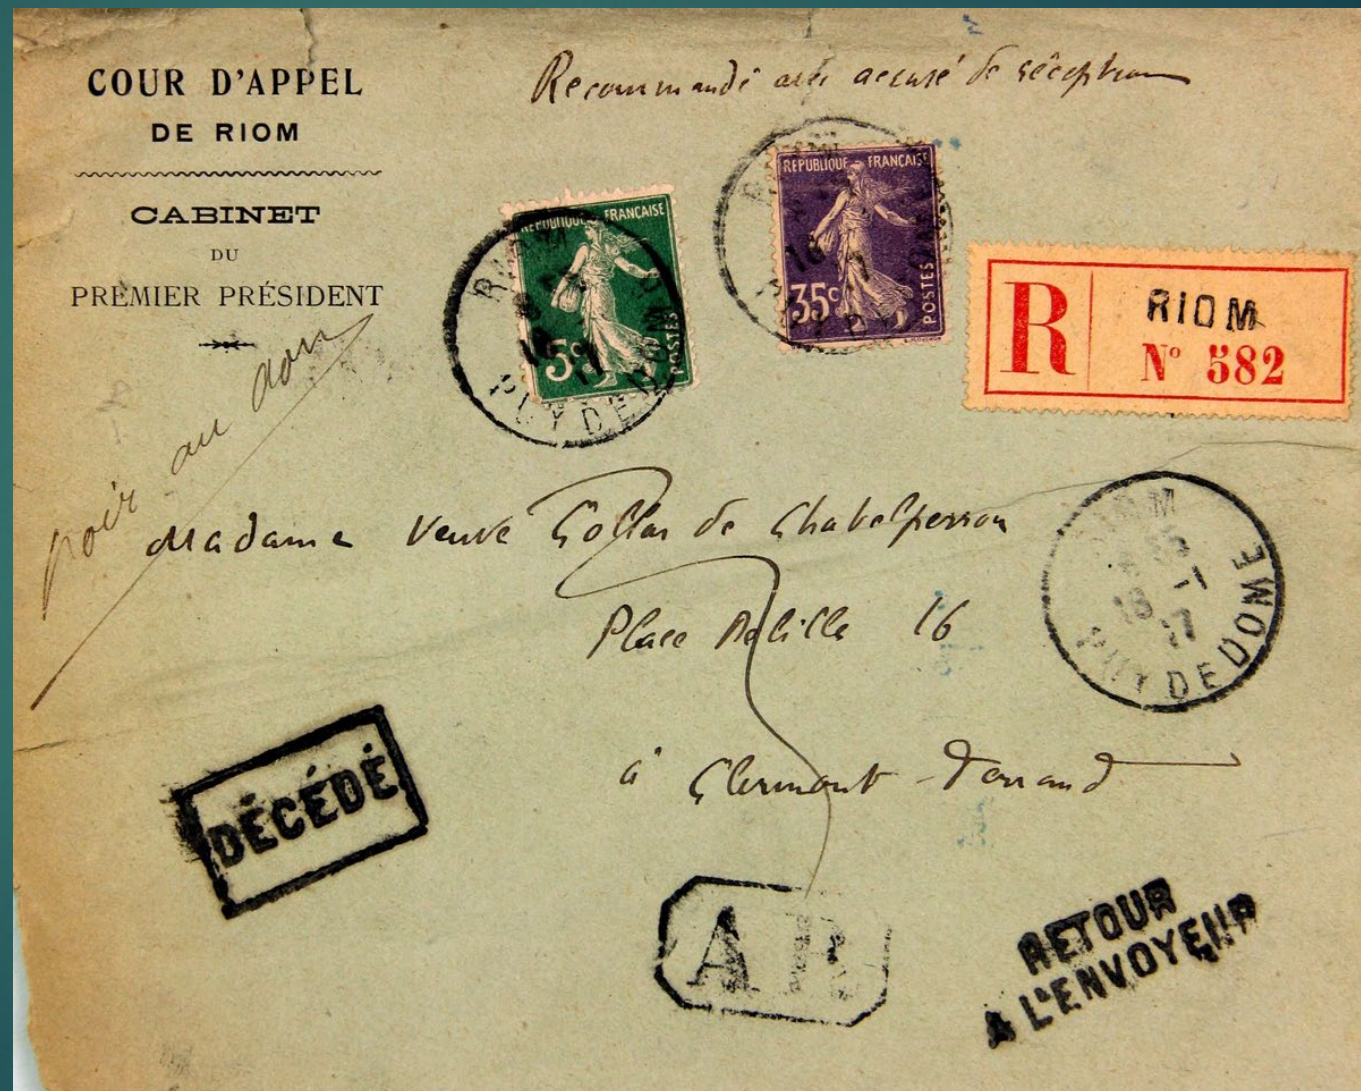 COUR D'APPEL
DE RIOM
CABINET
DU
PREMIER PRÉSIDENT
Recommandé avec accusé de réception
REPUBLIQUE FRANÇAISE
5c
POSTES
RIOM
PUY DE DOME
REPUBLIQUE FRANÇAISE
35c
POSTES
R
RIOM
N° 582
voir au dos
Madame Veuve de
Place Delille 16
à Clermont-Ferrand
RIOM
18 -1
17
PUY DE DOME
DÉCÉDÉ
AR
RETOUR
A L'ENVOYEUR